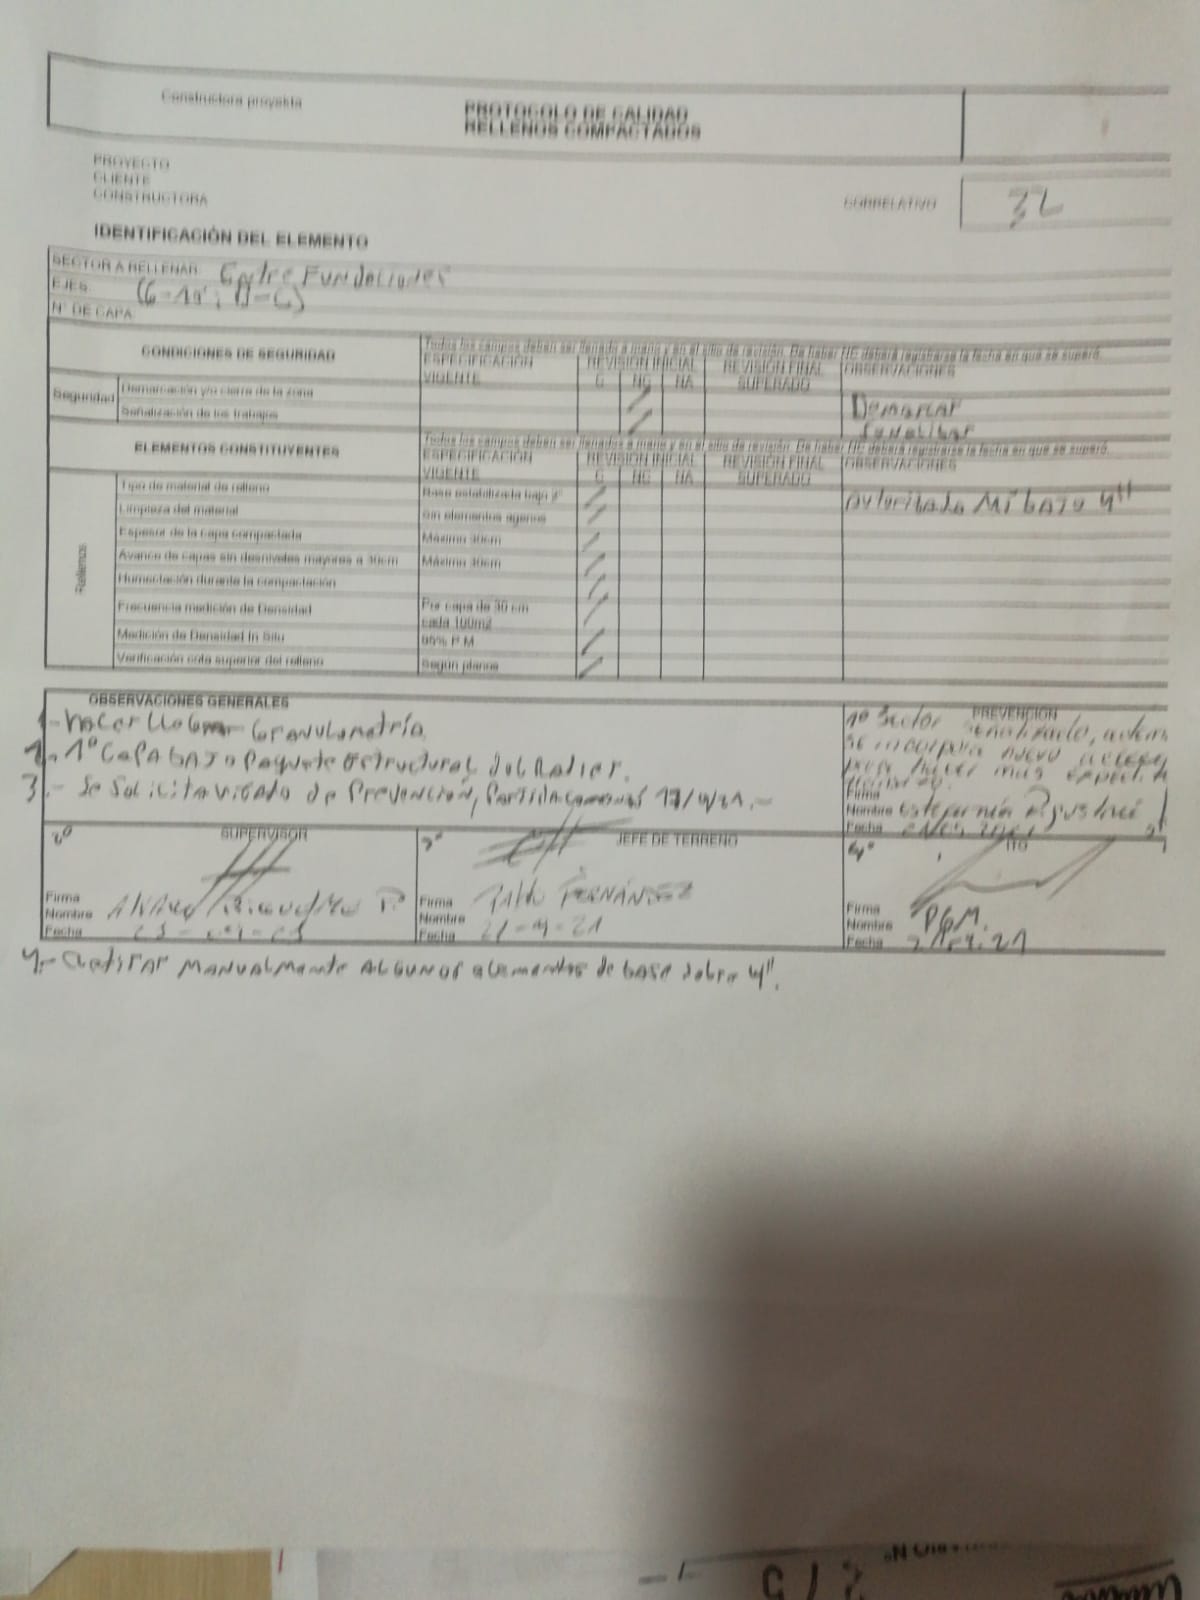 Constructora proyekta
PROTOCOLO DE CALIDAD
RELLENOS COMPACTADOS
PROYECTO
CLIENTE
CONSTRUCTORA
CORRELATIVO
32
IDENTIFICACIÓN DEL ELEMENTO
SECTOR A RELLENAR Entre Fundaciones
EJES
N° DE CAPA
CONDICIONES DE SEGURIDAD
Todos los campos deben ser llenado a mano y en el sitio de revisión. De haber NC deberá registrarse la fecha en que se superó.
ESPECIFICACIÓN VIGENTE REVISIÓN INICIAL REVISIÓN FINAL SUPERADO OBSERVACIONES
C NC NA
Seguridad Demarcación y/o cierre de la zona Demarcar
Señalización de los trabajos Señalizar
ELEMENTOS CONSTITUYENTES
Todos los campos deben ser llenados a mano y en el sitio de revisión. De haber NC deberá registrarse la fecha en que se superó.
ESPECIFICACIÓN VIGENTE REVISIÓN INICIAL REVISIÓN FINAL SUPERADO OBSERVACIONES
C NC NA
Rellenos
Tipo de material de relleno Base estabilizada bajo 2" bajo 4"
Limpieza del material Sin elementos agenos
Espesor de la capa compactada Máximo 30cm
Avance de capas sin desniveles mayores a 30cm Máximo 30cm
Humectación durante la compactación
Frecuencia medición de Densidad Por capa de 30 cm cada 100m2
Medición de Densidad In Situ 95% P.M
Verificación cota superior del relleno Según planos
OBSERVACIONES GENERALES
1.- Hacer llegar Granulometría.
2.- 1° Capa bajo paquete estructural del Radier.
3.- Se solicita visado de Prevención,
PREVENCION
1° Sector señalizado,
se incorpora nuevo
para hacer mas
Firma
Nombre
Fecha
2° SUPERVISOR
Firma
Nombre
Fecha
3° JEFE DE TERRENO
Firma
Nombre Pablo FERNÁNDEZ
Fecha 21-4-21
4° ITO
Firma
Nombre PGM.
Fecha
4.- Retirar MANUALMENTE ALGUNOS elementos de base sobre 4".